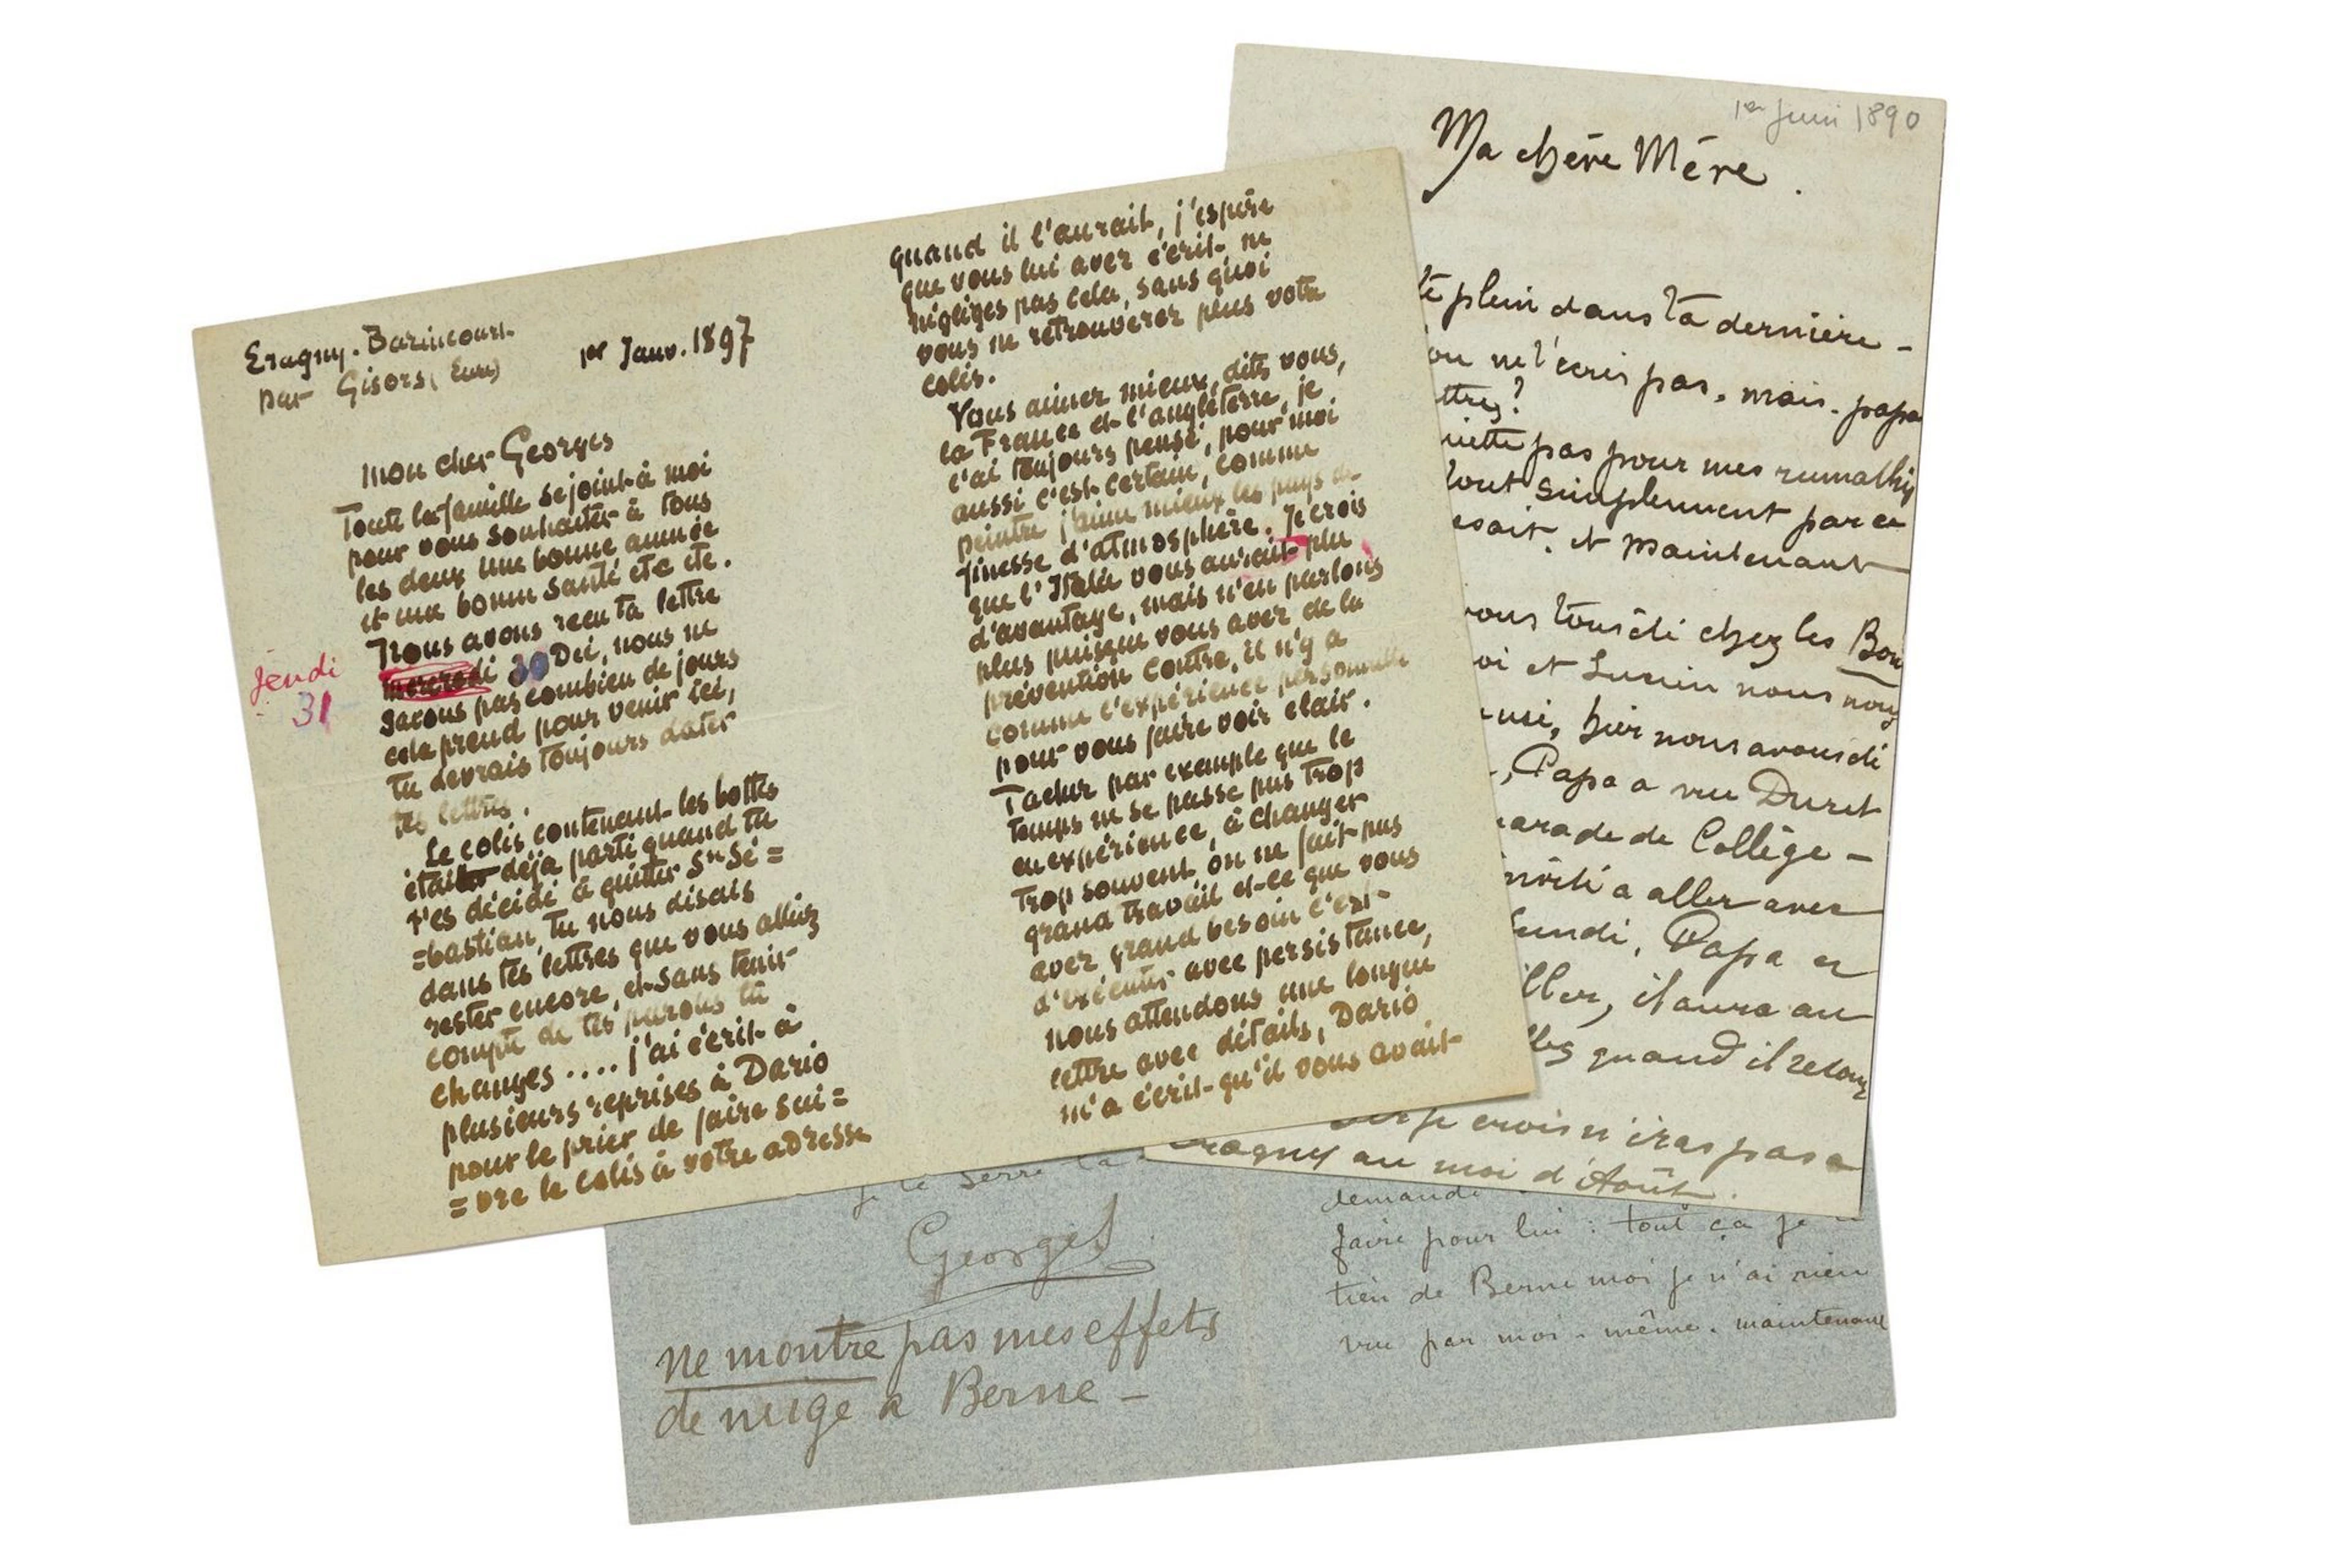 Eragny. Bazincourt
par Gisors (Eure)
1er Janv. 1897
mon cher Georges
Toute la famille se joint à moi
pour vous souhaiter à tous
les deux une bonne année
et une bonne santé etc etc.
Nous avons recu ta lettre
mercredi 30 Dec, nous ne
Jeudi
31
savons pas combien de jours
cela prend pour venir ici,
tu devrais toujours dater
tes lettres.
Le colis contenant les bottes
était déja parti quand tu
t'es décidé à quitter Sn Sé=
=bastian, tu nous disais
dans tes lettres que vous alliez
rester encore, et sans tenir
compte de tes paroles tu
changes .... j'ai écrit à
plusieurs reprises à Dario
pour le prier de faire sui=
=vre le colis à votre adresse
quand il l'aurait, j'espère
que vous lui avez écrit ne
négliges pas cela, sans quoi
vous ne retrouverez plus votre
colis.
Vous aimez mieux, dites vous,
la France et l'angleterre, je
l'ai toujours pensé, pour moi
aussi c'est certain, comme
peintre j'aime mieux les pays de
finesse d'atmosphère. Je crois
que l'Italie vous aurait plu
d'avantage, mais n'en parlons
plus puisque vous avez de la
prévention contre, il n'y a
comme l'expérience personnelle
pour vous faire voir clair.
Tachez par exemple que le
temps ne se passe pas trop
en expérience, à changer
trop souvent on ne fait pas
grand travail et ce que vous
avez grand besoin c'est
d'exécuter avec persistance,
nous attendons une longue
lettre avec détails, Dario
m'a écrit qu'il vous avait
1er Juin 1890
Ma chère Mère.
té plein dans ta dernière -
on ne t'ecris pas, mais papa
ttres?
uiette pas pour mes rumathis
tout simplement parce
esait. et maintenant
vous tous di chez les Bon
oi et Lucien nous nous
usé, hier nous avons di
, Papa a vue Duret
arade de Collège -
nvité a aller avec
Lundi, Papa et
ller, il aura au
lles quand il retour
je crois n'iras pas a
ragny au moi d'Août.
je te serre la
Georges
Ne montre pas mes effets
de neige a Berne -
demande
faire pour lui : tout ça je
tien de Berne moi je n'ai rien
vu par moi-même. maintenant